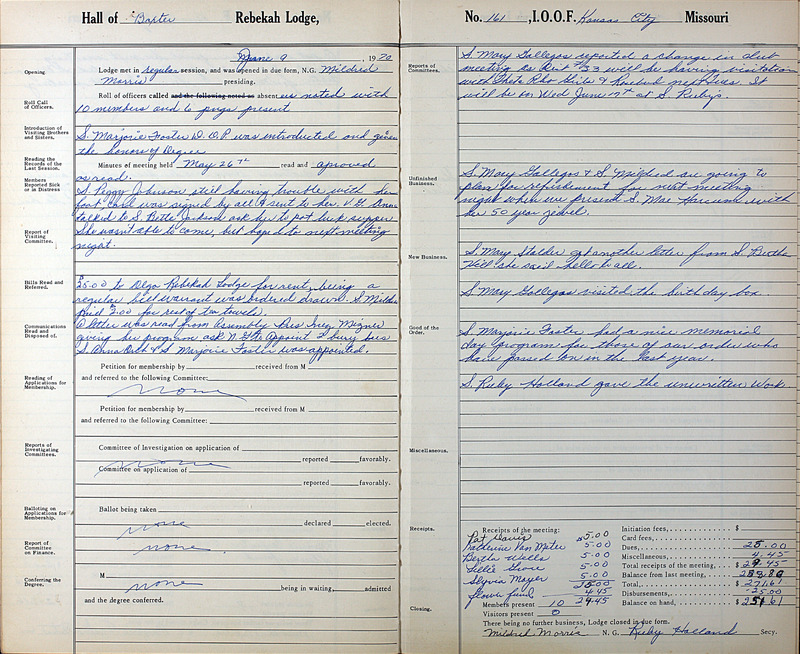 Hall of Baxter Rebekah Lodge,
June 9 1970
Opening
Lodge met in regular session, and was opened in due form, N.G. Mildred
Morris presiding.
Roll Call of Officers.
Roll of officers called and the following noted absent as noted with
10 members and 6 present
Introduction of Visiting Brothers and Sisters.
S. Marjorie Foster D.D.P. was introduced and given
the honors of Degree
Reading the Records of the Last Session.
Minutes of meeting held May 26th read and aproved
as read.
Members Reported Sick or in Distress
S. Peggy Johnson still having trouble with her
foot, card was signed by all & sent to her. V.G. Anna
talked to S. Bette Jackson ask her to pot luck supper
Report of Visiting Committee.
She wasn't able to come, but hope to next meeting
night.
Bills Read and Referred.
25.00 to Rebekah Lodge for rent, being a
regular bill warrant was ordered drawn. S. Mildred
Paid 2.00 for rest of tea towels.
Communications Read and Disposed of.
A letter was read from Assembly Pres Inez Mizner
giving her program ask N.G. to Appoint 2
S. Anna & S. Marjorie Foster was appointed.
Petition for membership by received from M
Reading of Applications for Membership.
and referred to the following Committee:
none
Petition for membership by received from M
and referred to the following Committee:
Reports of Investigating Committees.
Committee of Investigation on application of
none reported favorably.
Committee on application of
reported favorably.
Balloting on Applications for Membership.
Ballot being taken
none declared elected.
Report of Committee on Finance.
none
Conferring the Degree.
M
none being in waiting, admitted
and the degree conferred.
No. 161, I.O.O.F. Kansas City Missouri
Reports of Committees.
S. Mary Gallegos reported a change in club
meeting as Dist #33 will be having visitation
with Theta Rho Girls & next Tues. It
will be on Wed June 17th at S. Ruby's.
Unfinished Business.
S. Mary Gallegos & S. Mildred are going to
plan for refreshment for next meeting
night when we present S. Mae with
her 50 year jewel.
New Business.
S. Mary Stalder got another letter from S. Bertha
Hill she said hello to all.
S. Mary Gallegos visited the birthday box.
Good of the Order.
S. Marjorie Foster had a nice memorial
day program for those of our order who
have passed on in the last year.
S. Ruby Holland gave the unwritten work
Miscellaneous.
Receipts.
Receipts of the meeting:
Pat Davis 5.00
Katherine Van Meter 5.00
Bereta Wells 5.00
5.00
Sylvia Mayer 5.00
25.00
Flower fund 4.45
Members present 10 29.45
Visitors present 0
Initiation fees, $
Card fees,
Dues, 25.00
Miscellaneous, 4.45
Total receipts of the meeting, $ 29.45
Balance from last meeting,
Total, $
Disbursements, 25.00
Balance on hand, $
Closing.
There being no further business, Lodge closed in due form.
Mildred Morris N. G. Ruby Holland Secy.